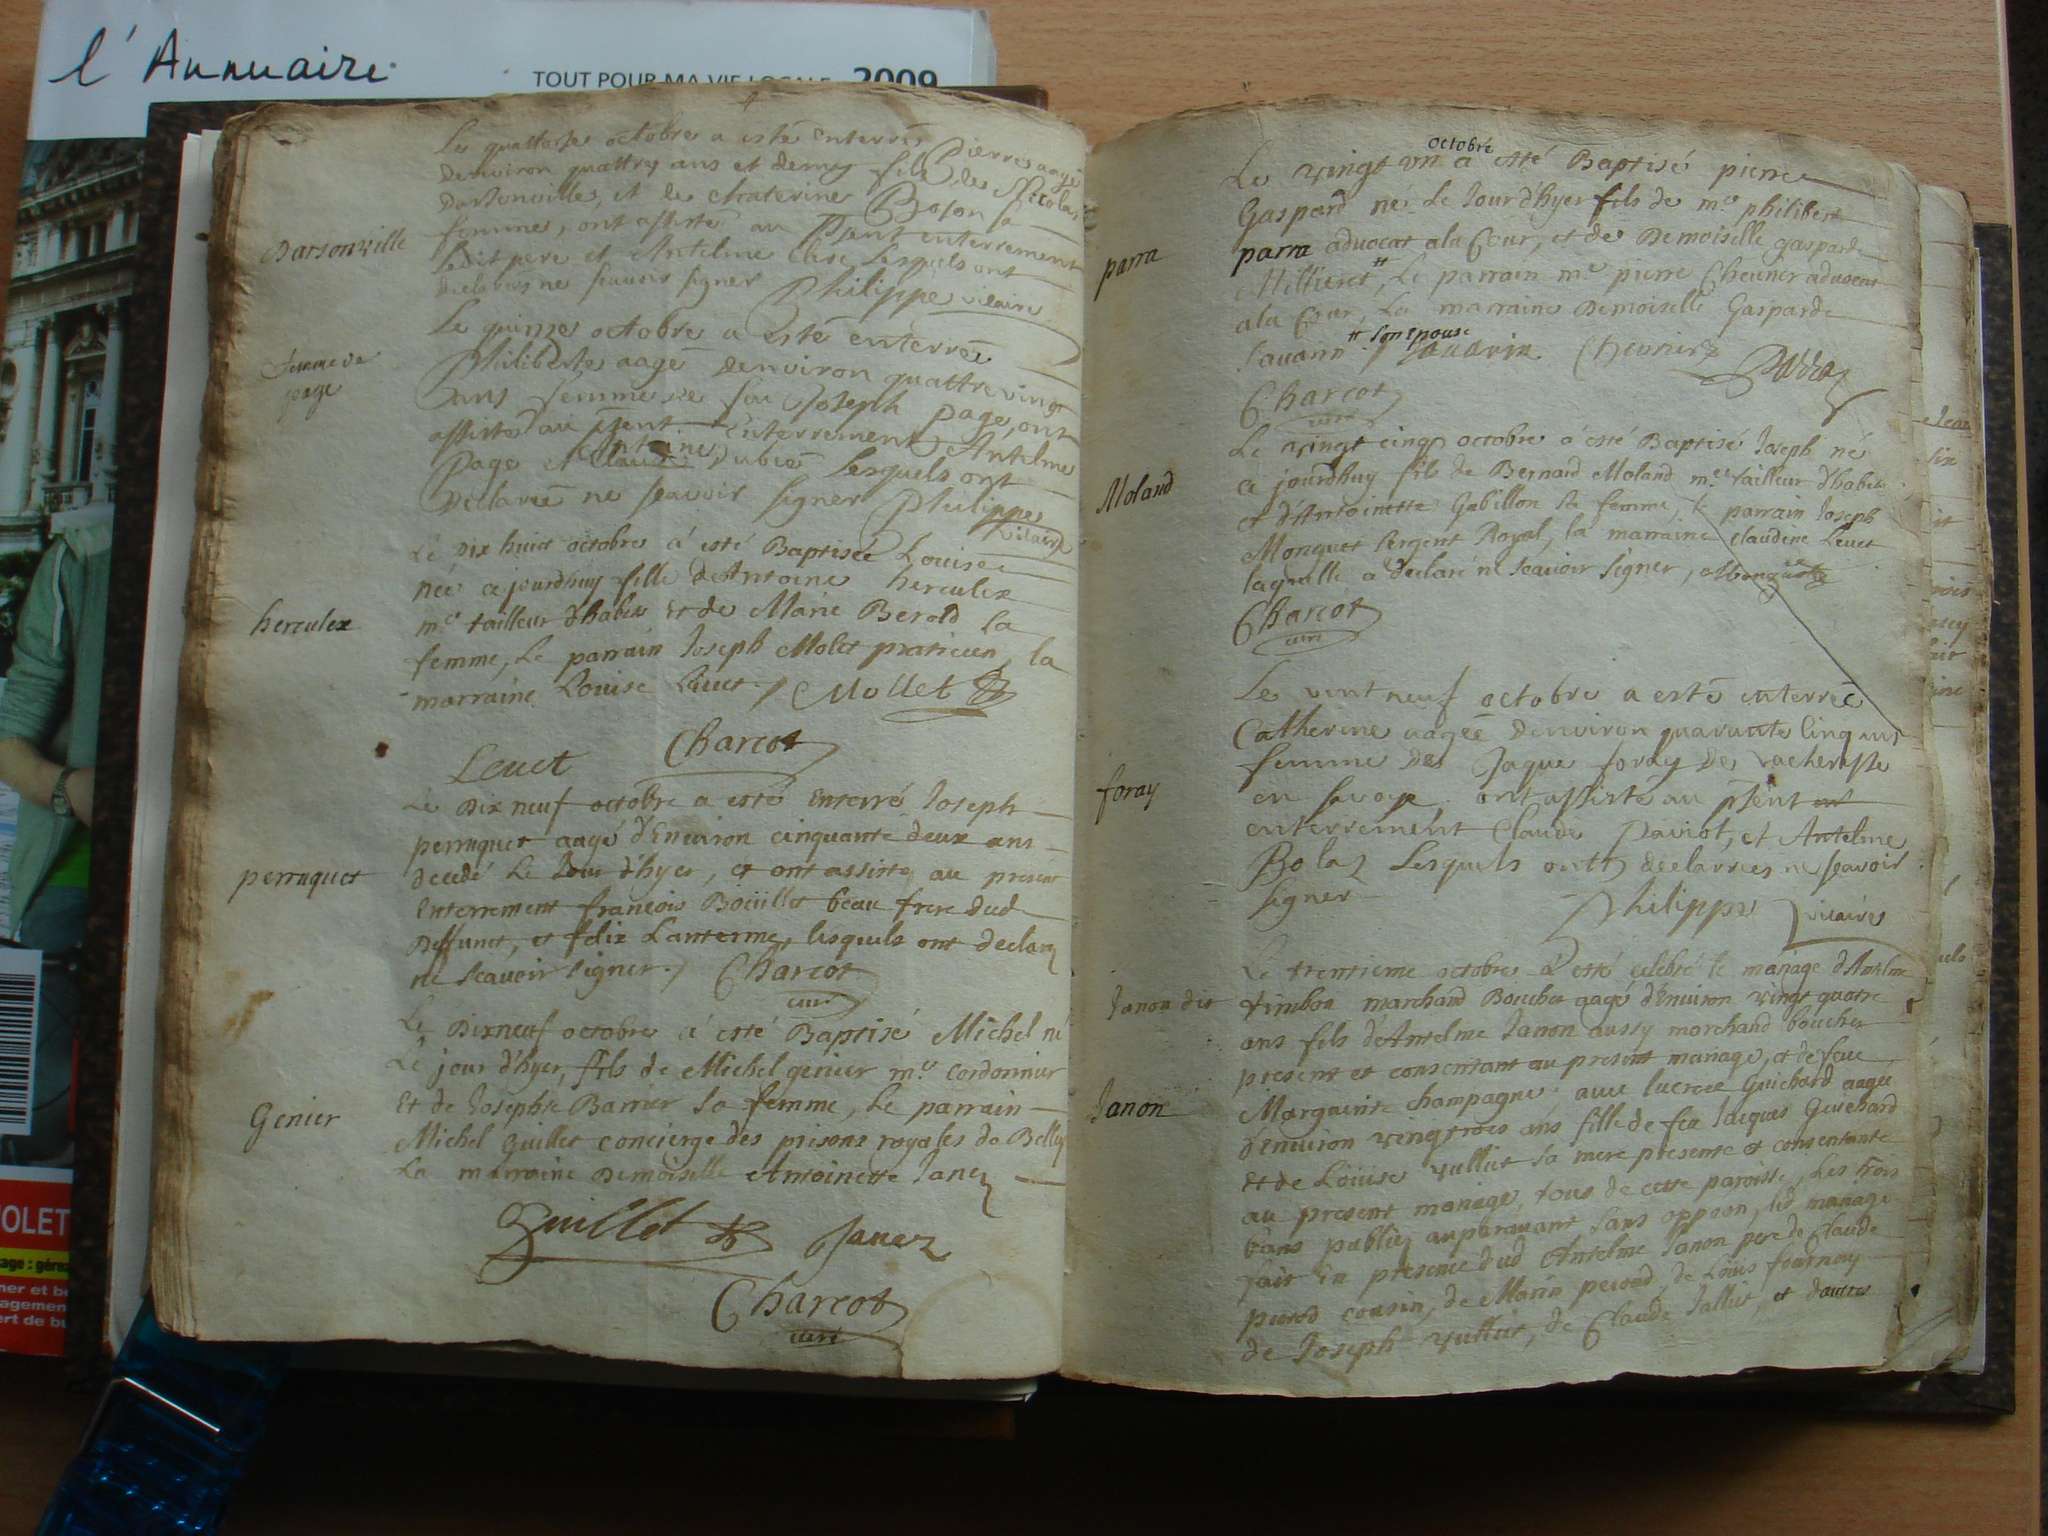 l'Annuaire
TOUT POUR MA VIE LOCALE 2009
Le quattorse octobre a esté enterré Pierre aagé
denviron quattres ans et demy fils de Nicolas
Darsonville, et de Chaterine Boson sa
femme, ont assisté au psent enterrement
ledit pere et Antelme Clerc lesquels ont
declarés ne scavoir signer Philippe vicaire
Darsonville
Le quinze octobre a esté enterrée
Philiberte aagé denviron quattre vingt
ans femme de feu Joseph Page, ont
assisté au psent enterrement Antelme
Page et Antoine Dubié lesquels ont
declarée ne scavoir signer Philippe
vicaire
femme de
page
Le dix huict octobre à esté Baptisée Louise
née ce jourdhuy fille dAntoine herculex
me tailleur dhabits et de Marie Berold sa
femme, le parrain Joseph Molet praticien, la
marraine Louise Levet / Mollet
Levet Charcot
herculex
Le dix neuf octobre a esté enterré Joseph
perruquet aagé d'Environ cinquante deux ans
decedé le Jour d'hyer, et ont assisté au present
Enterrement françois Boüillet beau frere dud
deffunct, et felix Lanterme, lesquels ont declaré
ne scavoir signer / Charcot
curé
perruquet
Le Dixneuf octobre à esté Baptisé Michel né
Le jour d'hyer, fils de Michel genier me Cordonnier
Et de Josephte Barrier sa femme, Le parrain
Michel Guillet concierge des prisons royales de Belley
La marraine Demoiselle Antoinette Janez
Guillet Janez
Charcot
curé
Genier
octobre
Le vingt un a esté Baptisé pierre
Gaspard né le Jour d'hyer fils de me philibert
parra advocat ala Cour, et de Demoiselle gasparde
Millieret #, Le parrain me pierre Chevrier advocat
ala Cour, La marraine Demoiselle Gasparde
Savarin / # son epouse Savarin Chevrier Parra
Charcot
curé
parra
Le vingt cinq octobre à esté Baptisé Joseph né
ce jourdhuy fils de Bernard Moland me tailleur d'habits
et d'Antoinette Gabillon sa femme, le parrain Joseph
Monquet Sergent Royal, la marraine Claudine Levet
laquelle a declaré ne scavoir signer,
Charcot
curé
Moland
Le vint neuf octobre a esté enterrée
Catherine aagée denviron quarante cinq ans
femme de Jaque foray de
en savoye ont assisté au psent
enterrement Claude Pairot, et Antelme
Bolaz lesquels ont declarées ne scavoir
signer
Philippe vicaire
foray
Le trentieme octobre à esté celebré le mariage d'Antelme
Janon dit
timbon marchand Boucher aagé d'Environ vingt quatre
ans fils d'Antelme Janon aussy marchand boucher
present et consentant au present mariage, et de feue
Marguerite Champagne avec lucrece Guichard aagée
Janon
d'Environ vingtrois ans fille de feu Jacques Guichard
et de Louise Vulliet sa mere presente et consentante
au present mariage, tous de cette paroisse, Les trois
bans publiez auparavant sans oppoon, led mariage
fait en presence dud Antelme Janon pere de Claude
perod cousin, de Marin perod, de Louis fournay
de Joseph vulliet, de Claude Jalliet, et dautres